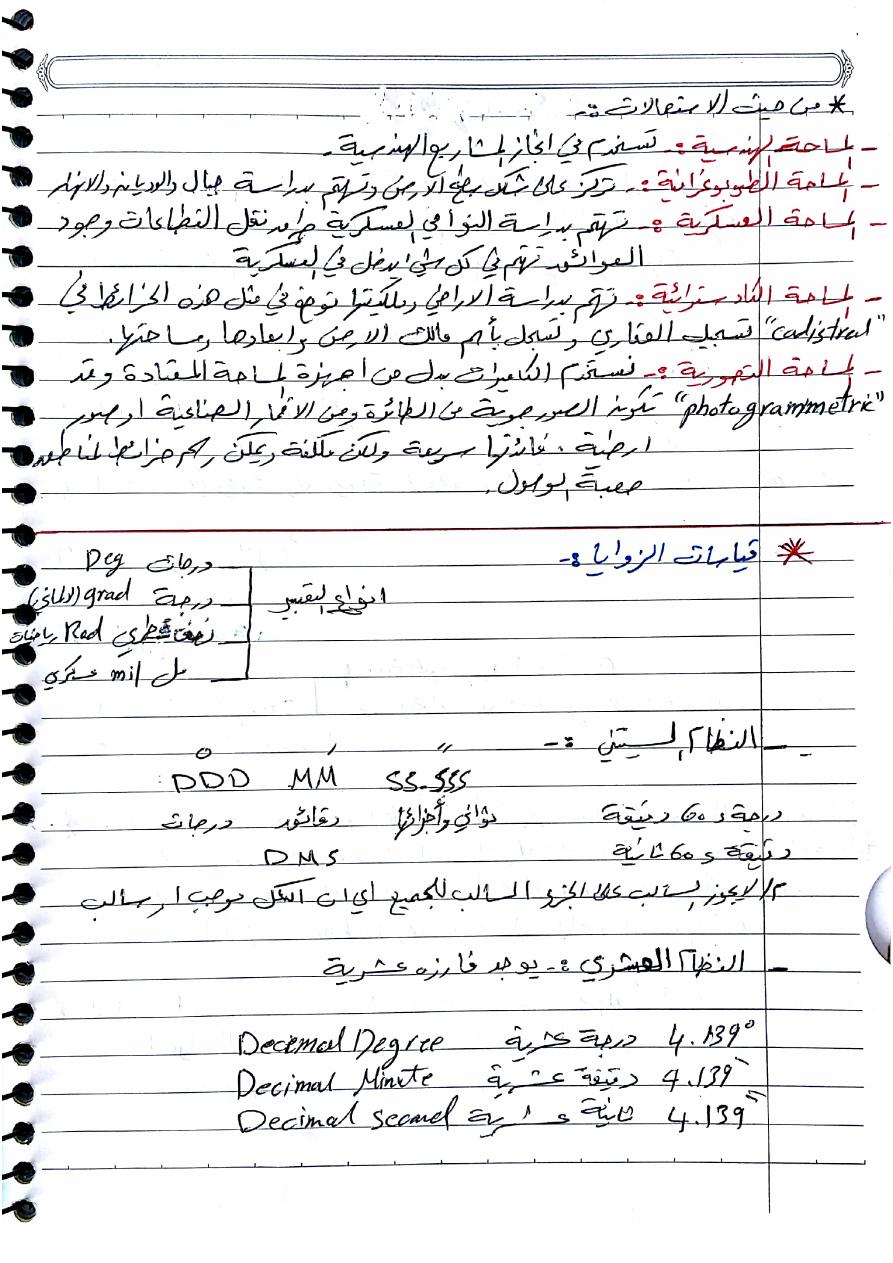 * من حيث الاستعمالات :-
- المساحة الهندسية :- تستخدم في انجاز المشاريع الهندسية .
- المساحة الطوبوغرافية :- تركز على شكل سطح الارض وتهتم بدراسة جبال والاديان والانهار
- المساحة العسكرية :- تهتم بدراسة النواحي العسكرية نقل القطاعات وجود
العوائق تهتم في كل شي يدخل في العسكرية
- المساحة الكادسترائية :- تهتم بدراسة الاراضي وملكيتها توضع في مثل هذه الخرائط في
"cadistral" تسجيل العقاري وتسجل بأسم مالك الارض وابعادها ومساحتها .
- المساحة التصويرية :- نستخدم الكاميرات بدل من اجهزة المساحة المعتادة وقد
"photogrammetric" تكون الصور جوية من الطائرة ومن الاقمار الصناعية او صور
ارضية . فائدتها سريعة ولكن مكلفة ويمكن رسم خرائط لمناطق
صعبة الوصول .
* قياسات الزوايا :-
درجات Deg
انواع التقسيم
درجة grad (الالماني)
نصف قطري Rad رياضيات
مل mil عسكري
- النظام الستيني :-
° ′ ″
DDD MM SS.SSS
درجات دقائق ثواني وأجزائها
درجة = 60 دقيقة
دقيقة = 60 ثانية
DMS
م/ لايجوز السالب على الجزء السالب للجميع اي ان الكل موجب او سالب
- النظام العشري :- يوجد فارزه عشرية
4.139° درجة عشرية Decemal Degree
4.139′ دقيقة عشرية Decimal Minute
4.139″ ثانية عشرية Decimal Second